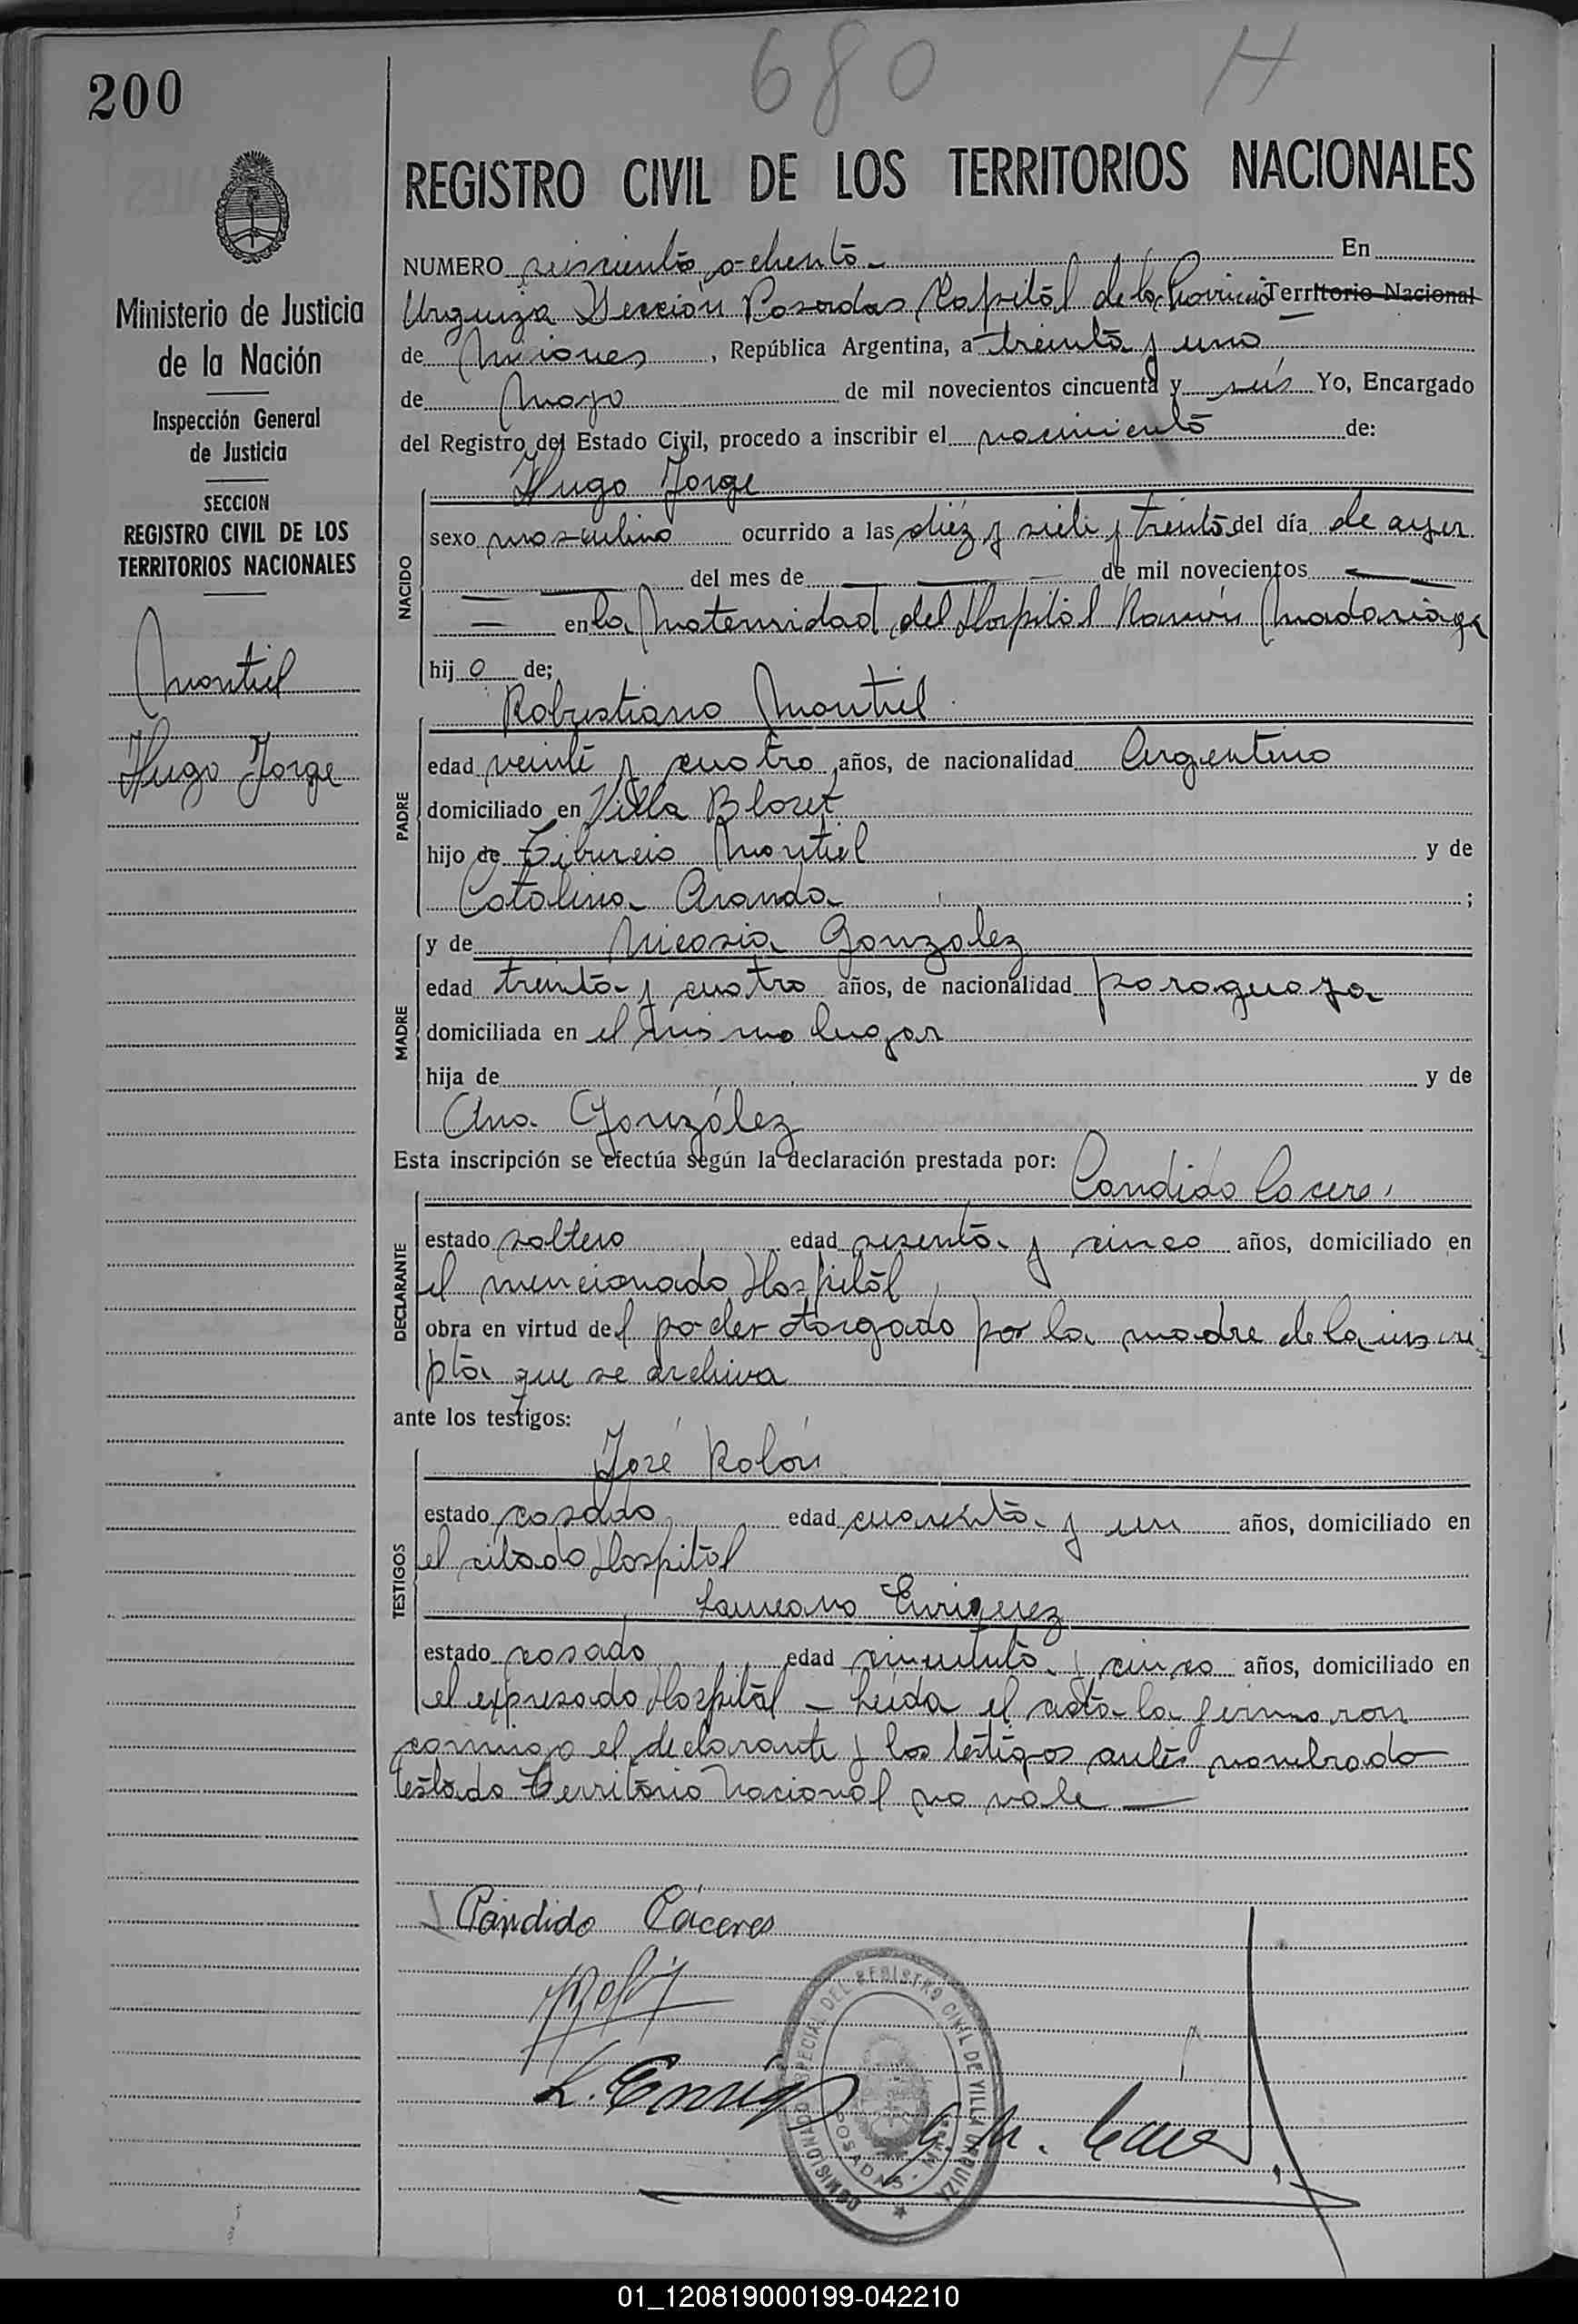 200
680 H
REGISTRO CIVIL DE LOS TERRITORIOS NACIONALES
Ministerio de Justicia
de la Nación
Inspección General
de Justicia
SECCION
REGISTRO CIVIL DE LOS
TERRITORIOS NACIONALES
Montiel
Hugo Jorge
NUMERO seiscientos ochenta - En
Urquiza Sección Posadas Capital de la Provincia Territorio Nacional
de Misiones, República Argentina, a treinta y uno
de Mayo de mil novecientos cincuenta y seis Yo, Encargado
del Registro del Estado Civil, procedo a inscribir el nacimiento de:
Hugo Jorge
NACIDO
sexo masculino ocurrido a las diéz y siete y treinta del día de ayer
del mes de de mil novecientos
en la Maternidad del Hospital Ramón Madariaga
hijo de;
Robustiano Montiel
PADRE
edad veinte y cuatro años, de nacionalidad Argentino
domiciliado en Villa Bloset
hijo de Tiburcio Montiel y de
Catalina Aranda ;
MADRE
y de Nicasia Gonzalez
edad treinta y cuatro años, de nacionalidad paraguaya
domiciliada en el mismo lugar
hija de y de
Ana González
Esta inscripción se efectúa según la declaración prestada por: Candido Caceres
DECLARANTE
estado soltero edad sesenta y cinco años, domiciliado en
el mencionado Hospital
obra en virtud del poder otorgado por la madre de la inscri
pta que se archiva
ante los testigos:
José Rolón
TESTIGOS
estado casado edad cuarenta y un años, domiciliado en
el citado Hospital
Laureano Enriquez
estado casado edad cincuenta y cinco años, domiciliado en
el expresado Hospital - Leida el acta la firmaron
conmigo el declarante y los testigos antes nombrado
testado Territorio Nacional no vale
Cándido Cáceres
L. Enriq
COMISIONADO ESPECIAL DEL REGISTRO CIVIL DE VILLA URQUIZA
POSADAS - MNES.
01_120819000199-042210